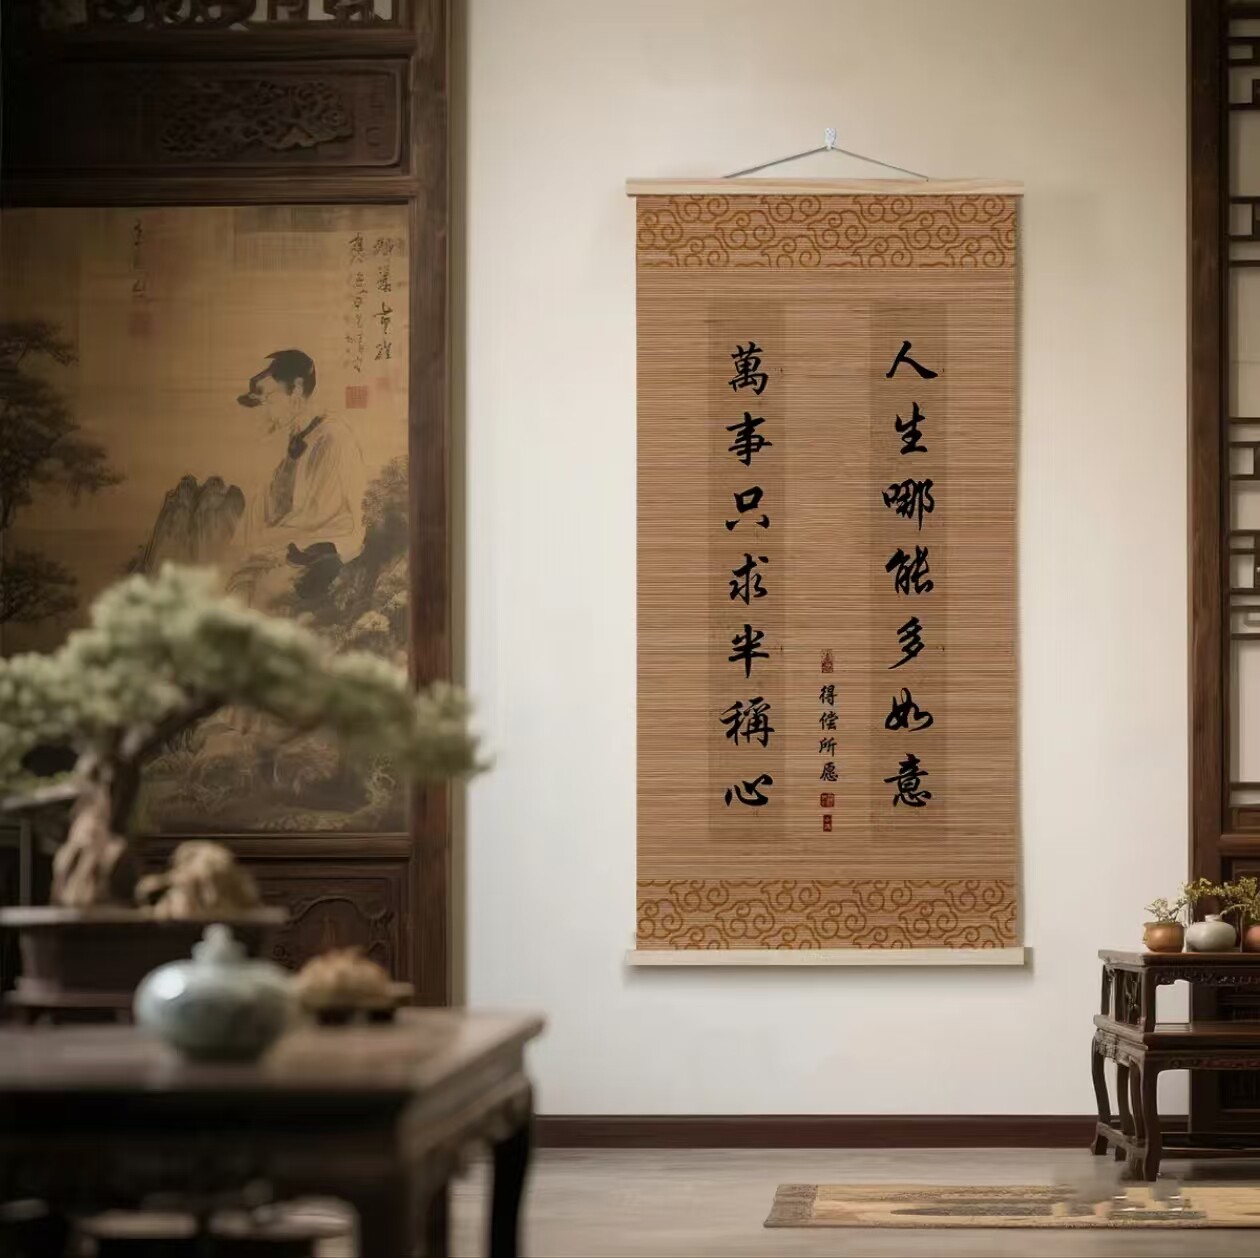 人生哪能多如意
得偿所愿
萬事只求半稱心